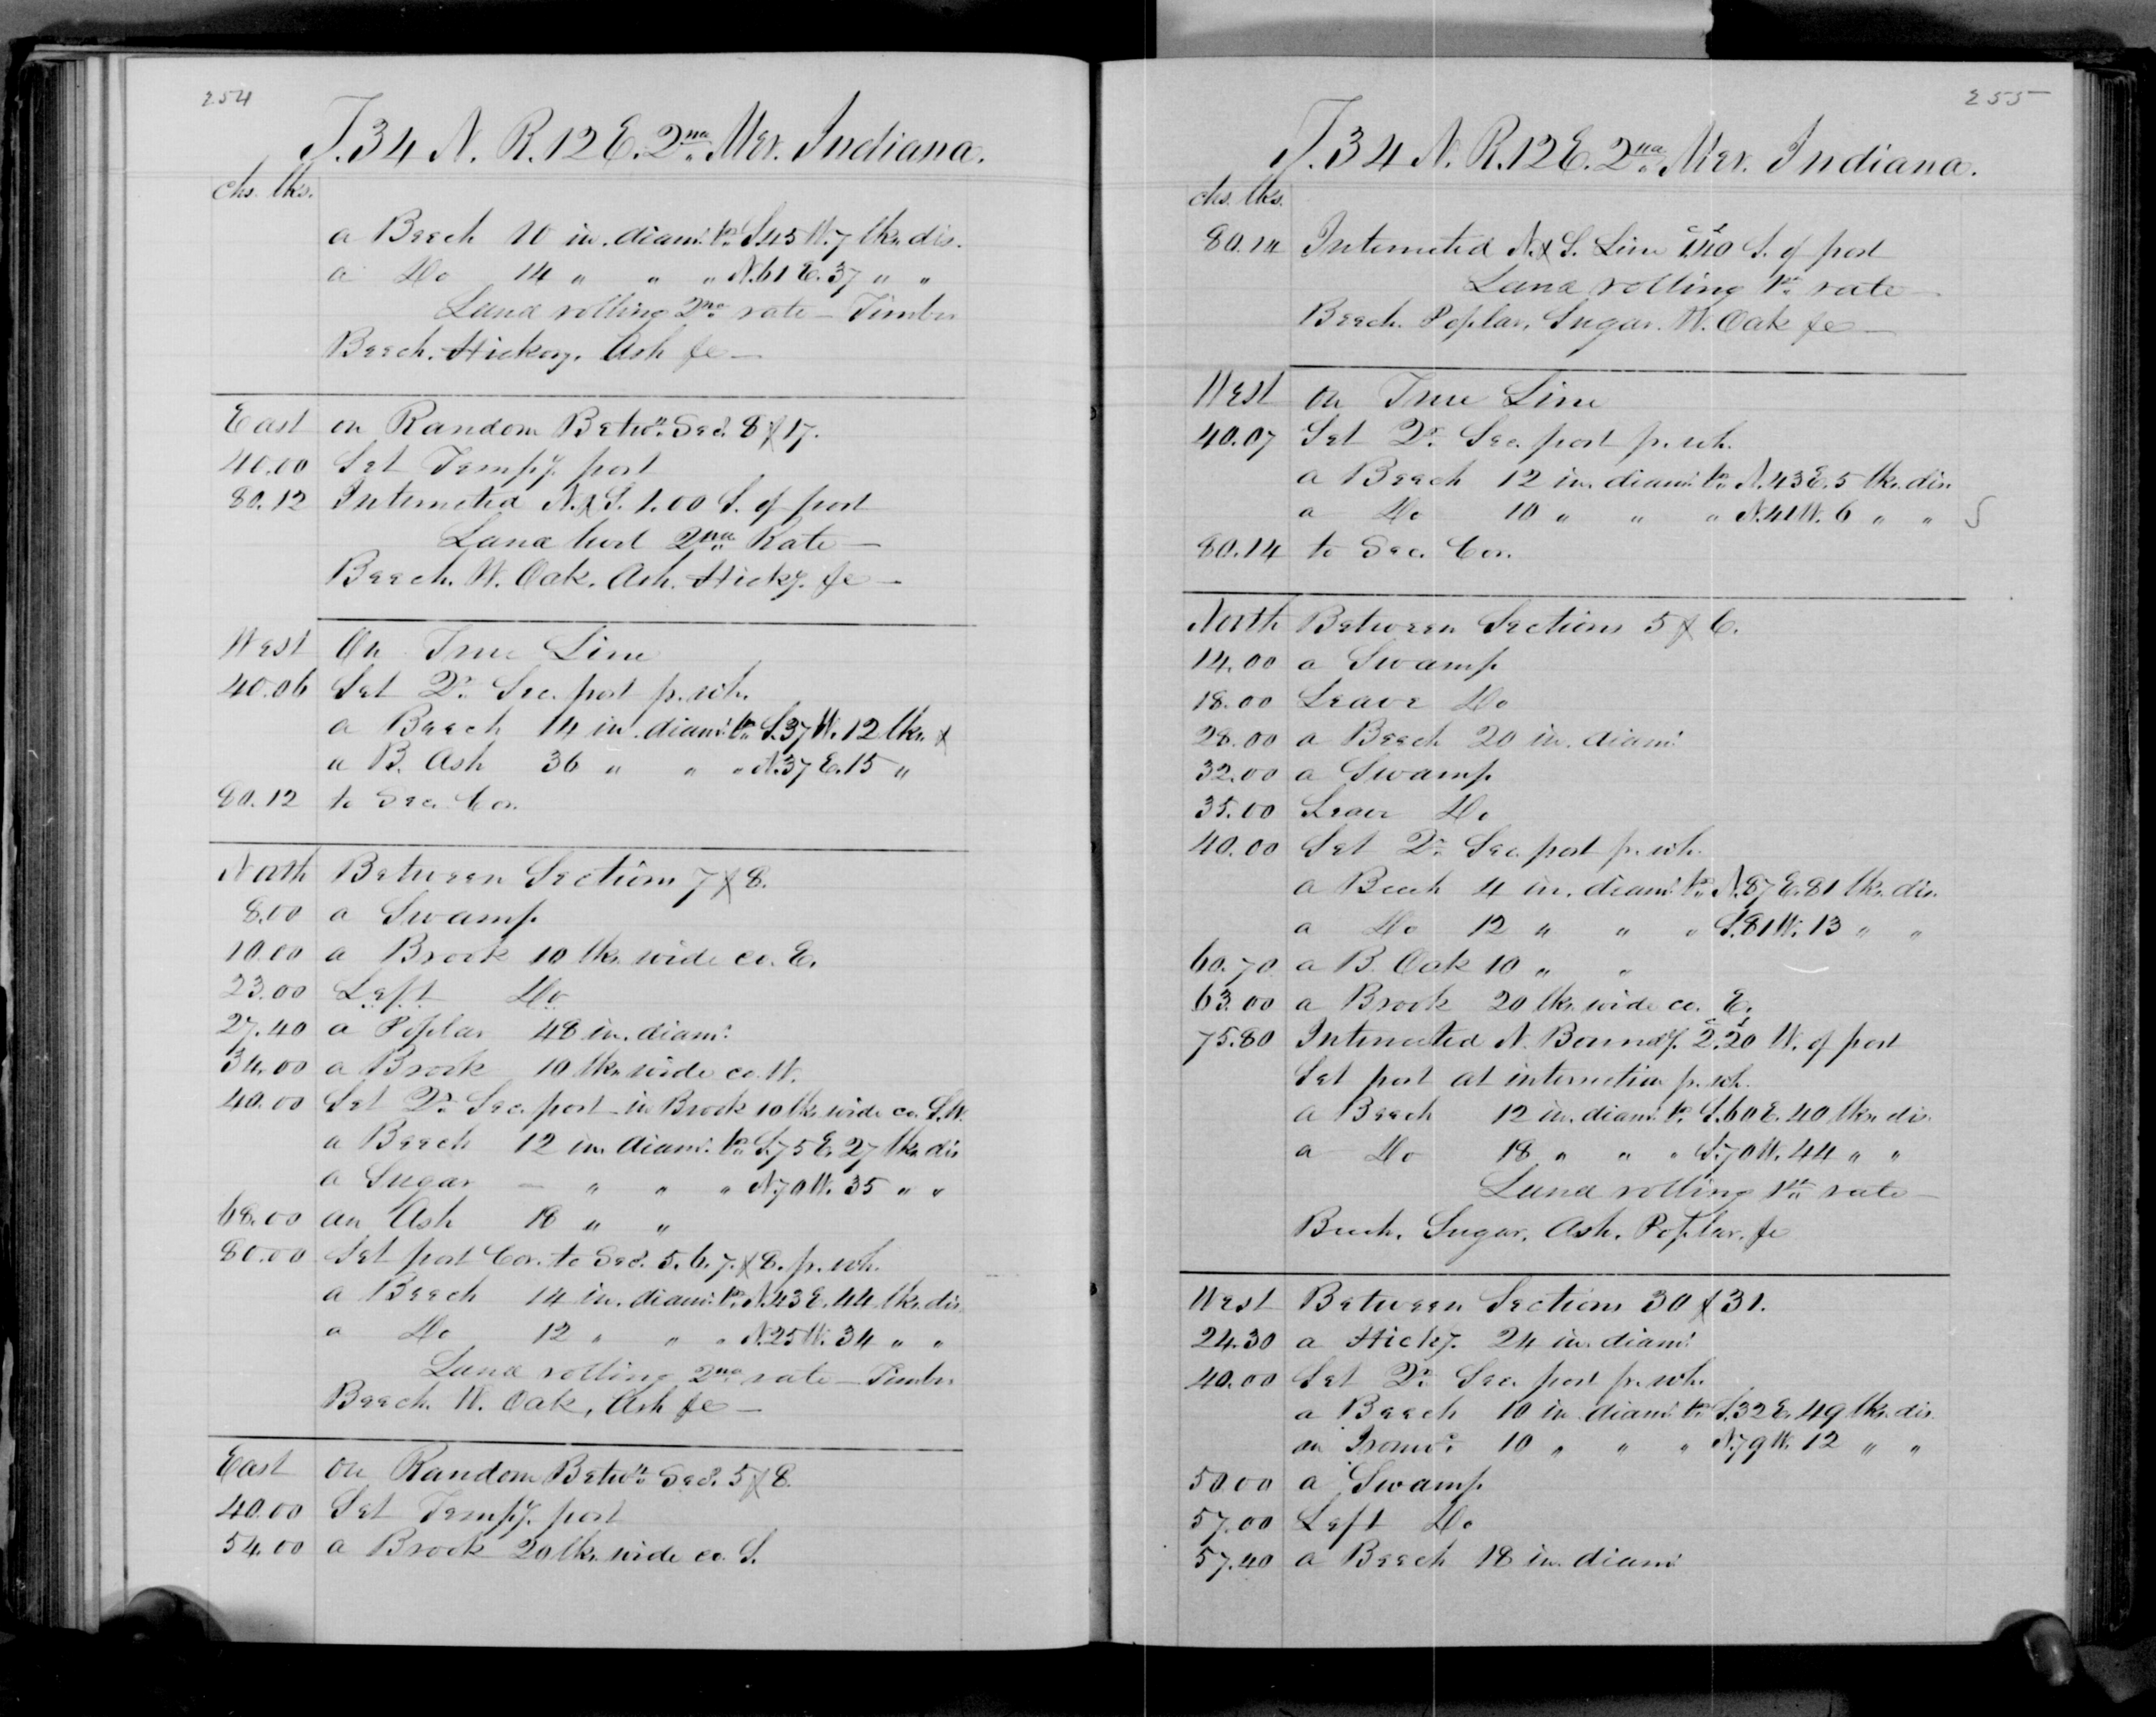 254
T. 34 N. R. 12 E. 2nd Mer. Indiana.
chs. lks.
a Beech 10 in. diamr. brs. S. 45 W. 7 lks. dis.
a Do 14 " " " N. 61 E. 37 " "
Land rolling 2nd rate — Timber
Beech. Hickory. Ash &c —
East on Random Betwn. Secs. 8 & 17.
40.00 Set Tempy. post
80.12 Intersected N. & S. 1.00 S. of post
Land 2nd Rate —
Beech. W. Oak. Ash. Hicky. &c —
West On True Line
40.06 Set Qr. Sec. post fr. wh.
a Beech 14 in. diamr. brs. S. 37 W. 12 lks. &
a B. Ash 36 " " " N. 37 E. 15 "
80.12 to Sec. Cor.
North Between Sections 7 & 8.
8.00 a Swamp
10.00 a Brook 10 lks. wide co. E.
23.00 Left Do
27.40 a Poplar 48 in. diamr.
34.00 a Brook 10 lks. wide co. W.
40.00 Set Qr. Sec. post in Brook 10 lks. wide co. S.W.
a Beech 12 in. diamr. brs. S. 75 E. 27 lks. dis
a Sugar — " " " N. 70 W. 35 " "
68.00 an Ash 18 " "
80.00 Set post Cor. to Secs. 5. 6. 7. & 8. fr. wh.
a Beech 14 in. diamr. brs. N. 43 E. 44 lks. dis
a Do 12 " " " N. 25 W. 34 " "
Land rolling 2nd rate — Timber
Beech. W. Oak, Ash &c —
East on Random Betwn. Secs. 5 & 8.
40.00 Set Tempy. post
54.00 a Brook 20 lks. wide co. S.
255
T. 34 N. R. 12 E. 2nd Mer. Indiana.
chs. lks.
80.14 Intersected N. & S. Line 1.40 S. of post
Land rolling 1st. rate —
Beech. Poplar. Sugar. W. Oak &c —
West on True Line
40.07 Set Qr. Sec. post fr. wh.
a Beech 12 in. diamr. brs. N. 43 E. 5 lks. dis.
a Do 10 " " " N. 41 W. 6 " " S
80.14 to Sec. Cor.
North Between Sections 5 & 6.
14.00 a Swamp
18.00 Leave Do
28.00 a Beech 20 in. diamr.
32.00 a Swamp
35.00 Leave Do
40.00 Set Qr. Sec. post fr. wh.
a Beech 4 in. diamr. brs. N. 87 E. 81 lks. dis.
a Do 12 " " " S. 81 W. 13 " "
60.70 a B. Oak 10 " "
63.00 a Brook 20 lks. wide co. E.
75.80 Intersected N. Boundy. 2.20 W. of post
Set post at intersection fr. wh.
a Beech 12 in. diamr. brs. S. 60 E. 40 lks. dis.
a Do 18 " " " S. 70 W. 44 " "
Land rolling 1st. rate —
Beech. Sugar. Ash. Poplar. &c
West Between Sections 30 & 31.
24.30 a Hicky. 24 in. diamr.
40.00 Set Qr. Sec. post fr. wh.
a Beech 10 in. diamr. brs. S. 32 E. 49 lks. dis.
an Ironwd. 10 " " " N. 79 W. 12 " "
50.00 a Swamp
57.00 Left Do
57.40 a Beech 18 in. diamr.